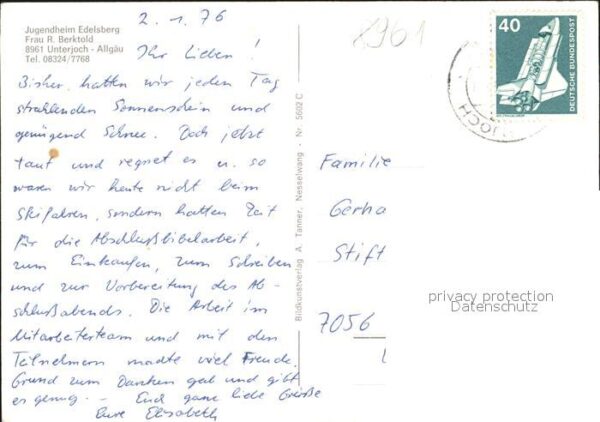 Jugendheim Edelsberg
Frau R. Berktold
8961 Unterjoch - Allgäu
Tel. 08324/7768
2. 1. 76
Ihr Lieben!
Bisher hatten wir jeden Tag
strahlenden Sonnenschein und
genügend Schnee. Doch jetzt
taut und regnet es u. so
waren wir heute nicht beim
Skifahren, sondern hatten Zeit
für die Abschlußbibelarbeit,
zum Einkaufen, zum Schreiben
und zur Vorbereitung des Ab-
schlußabends. Die Arbeit im
Mitarbeiterteam und mit den
Teilnehmern machte viel Freude.
Grund zum Danken gab und gibt
es genug. – Euch ganz liebe Grüße
Eure Elisabeth
Bildkunstverlag A. Tanner, Nesselwang - Nr. 5602 C
8961
40
DEUTSCHE BUNDESPOST
Familie
Gerha
Stift
7056
privacy protection
Datenschutz